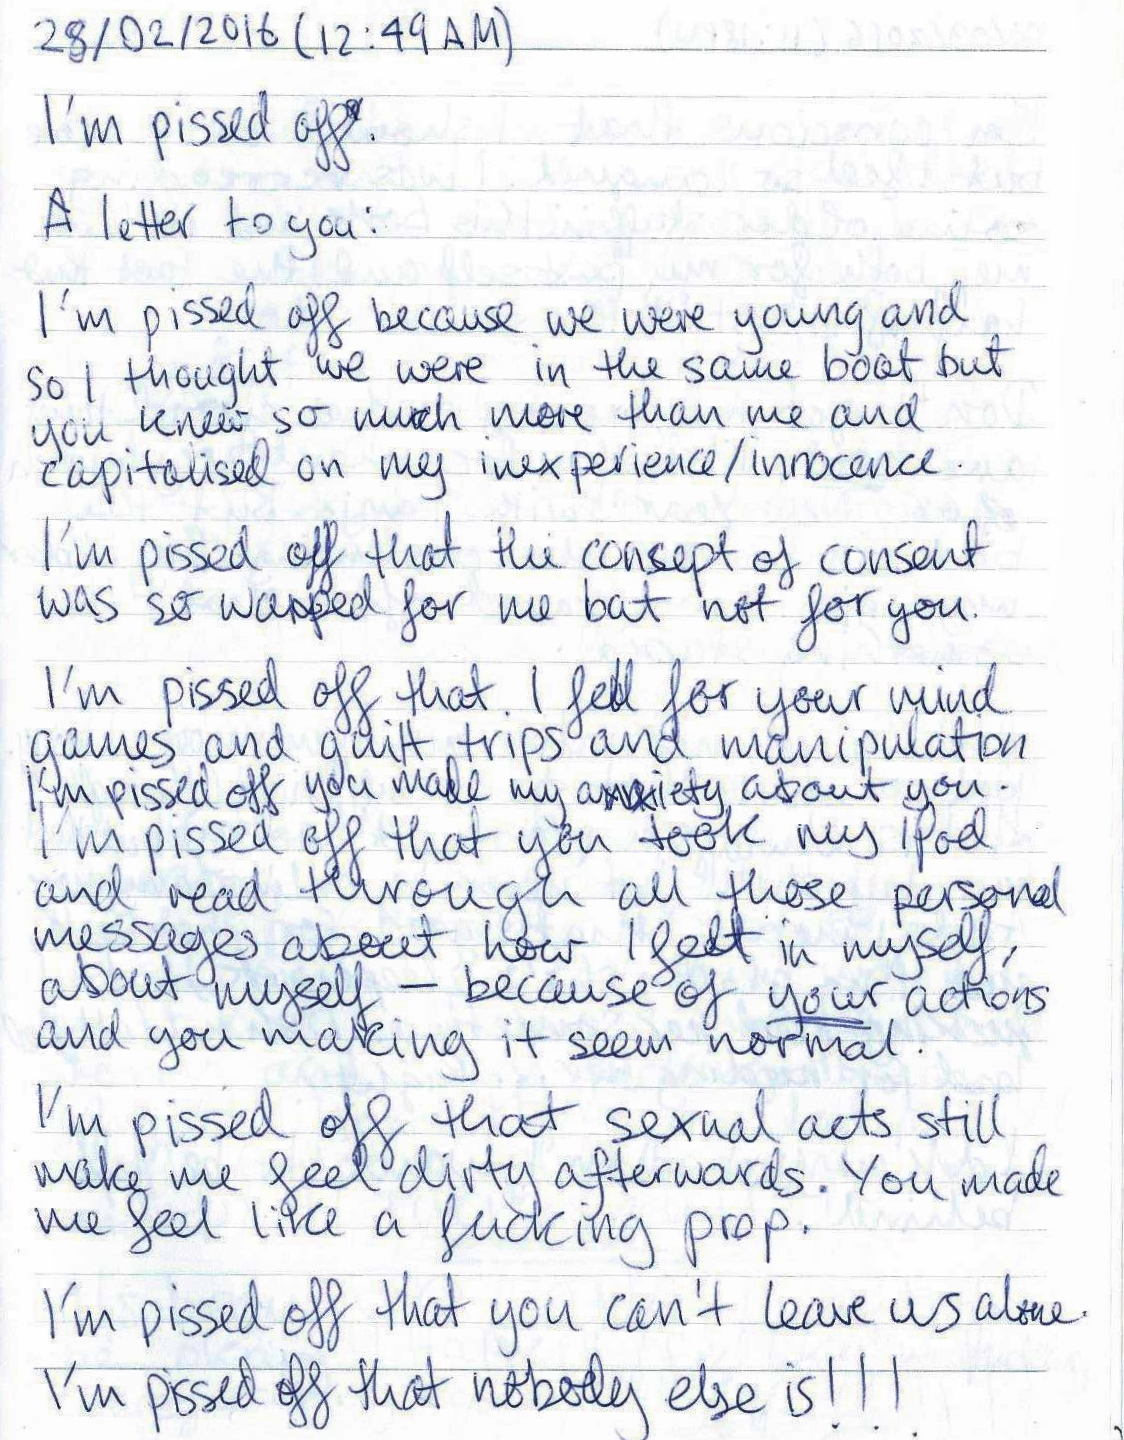 28/02/2016 (12:49AM)
I'm pissed off.
A letter to you:
I'm pissed off because we were young and
so I thought we were in the same boat but
you knew so much more than me and
capitalised on my inexperience/innocence.
I'm pissed off that the consept of consent
was so warped for me but not for you.
I'm pissed off that I fell for your mind
games and guilt trips and manipulation
I'm pissed off you made my anxiety about you.
I'm pissed off that you took my iPod
and read through all those personal
messages about how I felt in myself,
about myself – because of your actions
and you making it seem normal.
I'm pissed off that sexual acts still
make me feel dirty afterwards. You made
me feel like a fucking prop.
I'm pissed off that you can't leave us alone.
I'm pissed off that nobody else is!!!